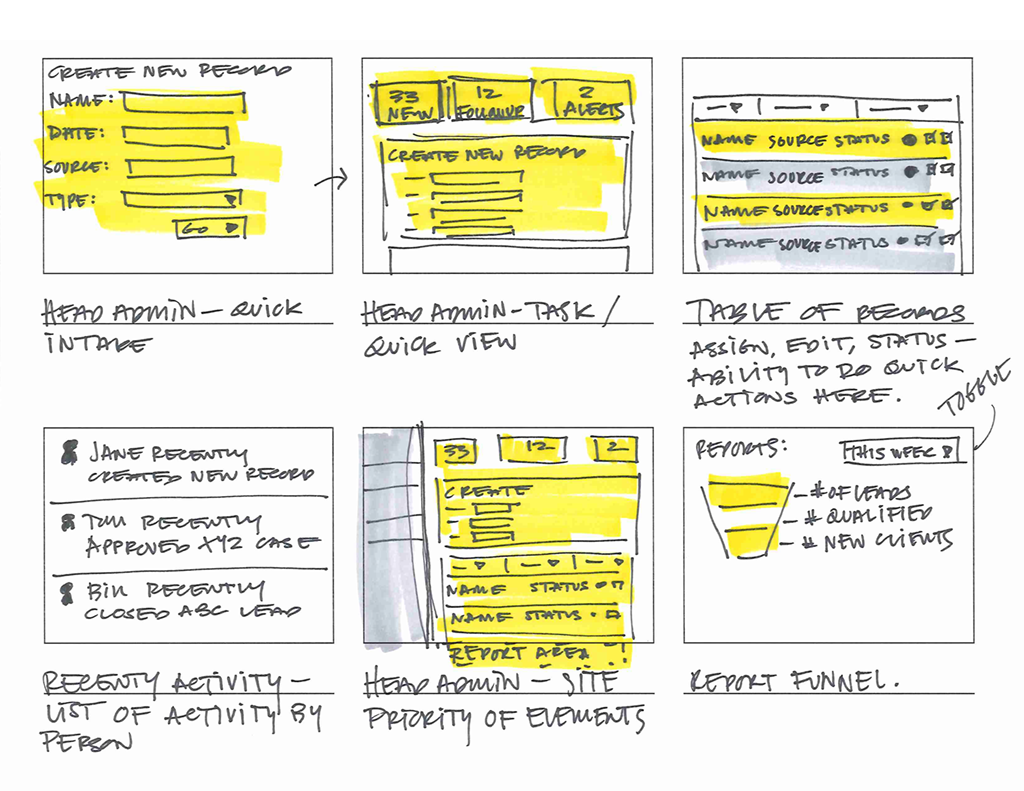 CREATE NEW RECORD
NAME:
DATE:
SOURCE:
TYPE:
GO
HEAD ADMIN – QUICK
INTAKE
33 NEW
12 FOLLOWUP
2 ALERTS
CREATE NEW RECORD
HEAD ADMIN – TASK /
QUICK VIEW
NAME SOURCE STATUS
NAME SOURCE STATUS
NAME SOURCE STATUS
NAME SOURCE STATUS
TABLE OF RECORDS
ASSIGN, EDIT, STATUS –
ABILITY TO DO QUICK
ACTIONS HERE.
JANE RECENTLY
CREATED NEW RECORD
TOM RECENTLY
APPROVED XYZ CASE
BILL RECENTLY
CLOSED ABC LEAD
RECENTY ACTIVITY –
LIST OF ACTIVITY BY
PERSON
33 12 2
CREATE
NAME STATUS
NAME STATUS
REPORT AREA
HEAD ADMIN – SITE
PRIORITY OF ELEMENTS
TOGGLE
REPORTS: THIS WEEK
– # OF LEADS
– # QUALIFIED
– # NEW CLIENTS
REPORT FUNNEL.